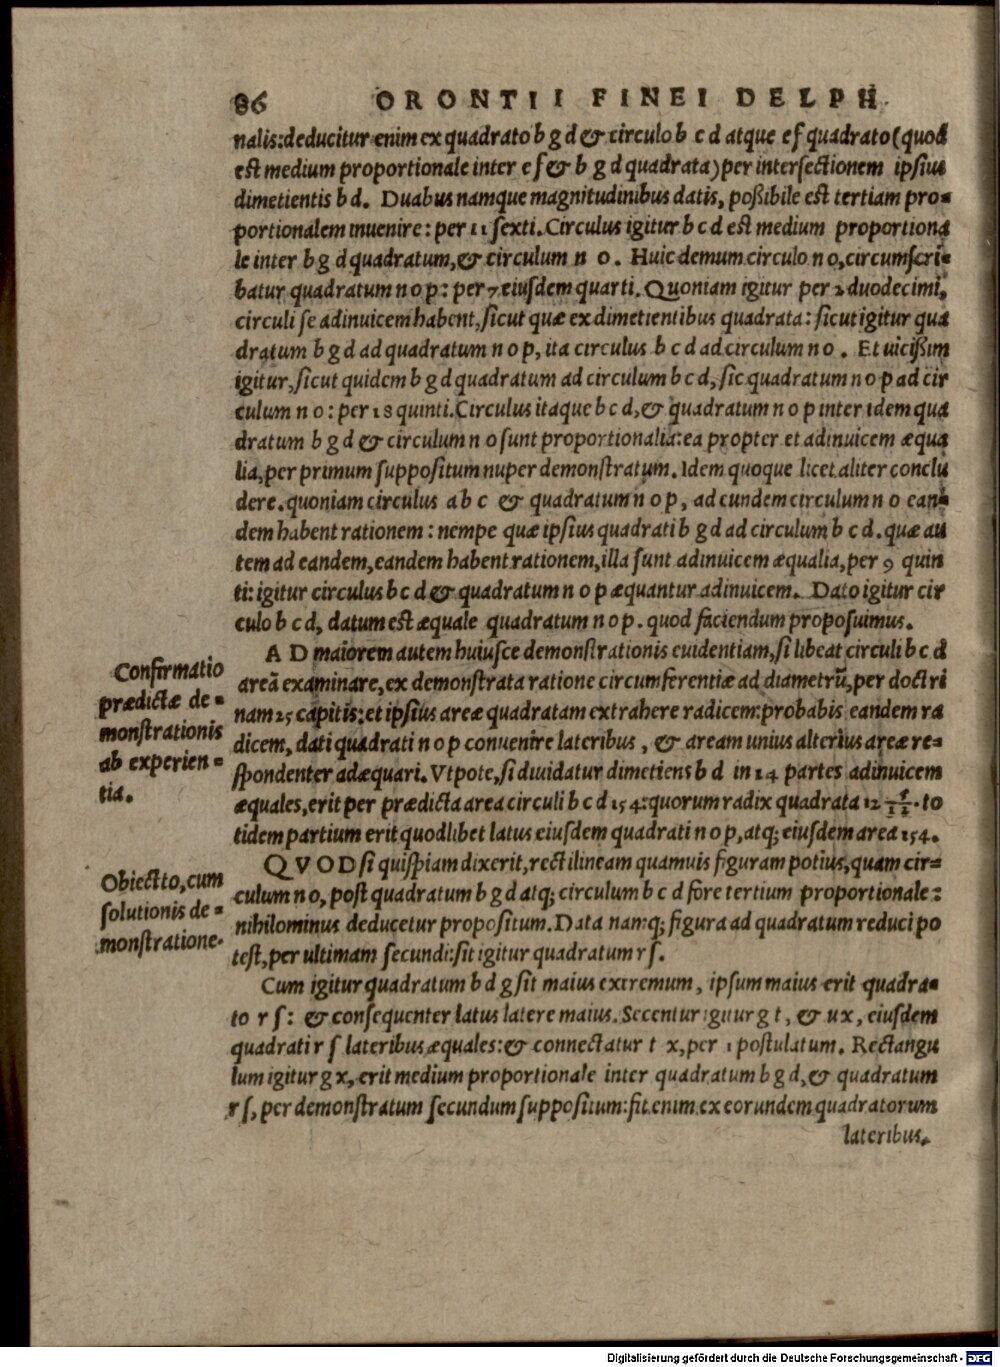 86 ORONTII FINEI DELPH.
nalis: deducitur enim ex quadrato b g d & circulo b c d atque e f quadrato (quod
est medium proportionale inter e f & b g d quadrata) per intersectionem ipsius
dimetientis b d. Duabus namque magnitudinibus datis, poßibile est tertiam pro-
portionalem inuenire: per 11 sexti. Circulus igitur b c d est medium proportiona
le inter b g d quadratum, & circulum n o. Huic demum circulo n o, circumscri-
batur quadratum n o p: per 7 eiusdem quarti. Quoniam igitur per 2 duodecimi,
circuli se adinuicem habent, sicut quæ ex dimetientibus quadrata: sicut igitur qua
dratum b g d ad quadratum n o p, ita circulus b c d ad circulum n o. Et uicißim
igitur, sicut quidem b g d quadratum ad circulum b c d, sic quadratum n o p ad cir
culum n o: per 18 quinti. Circulus itaque b c d, & quadratum n o p inter idem qua
dratum b g d & circulum n o sunt proportionalia: ea propter et adinuicem æqua
lia, per primum suppositum nuper demonstratum. Idem quoque licet aliter conclu
dere. quoniam circulus a b c & quadratum n o p, ad eundem circulum n o ean-
dem habent rationem: nempe quæ ipsius quadrati b g d ad circulum b c d. quæ au
tem ad eandem, eandem habent rationem, illa sunt adinuicem æqualia, per 9 quin
ti: igitur circulus b c d & quadratum n o p æquantur adinuicem. Dato igitur cir
culo b c d, datum est æquale quadratum n o p. quod faciendum proposuimus.
A D maiorem autem huiusce demonstrationis euidentiam, si libeat circuli b c d
areã examinare, ex demonstrata ratione circumferentiæ ad diametrũ, per doctri
nam 25 capitis: et ipsius areæ quadratam extrahere radicem: probabis eandem ra
dicem, dati quadrati n o p conuenire lateribus, & aream unius alterius areæ re-
spondenter adæquari. Vtpote, si diuidatur dimetiens b d in 14 partes adinuicem
æquales, erit per prædicta area circuli b c d 154: quorum radix quadrata 12 5/12. to
tidem partium erit quodlibet latus eiusdem quadrati n o p, atq; eiusdem area 154.
Confirmatio
prædictæ de-
monstrationis
ab experien-
tia.
Q V O D si quispiam dixerit, rectilineam quamuis figuram potius, quam cir-
culum n o, post quadratum b g d atq; circulum b c d fore tertium proportionale:
nihilominus deducetur propositum. Data namq; figura ad quadratum reduci po
test, per ultimam secundi: sit igitur quadratum r s.
Obiectio, cum
solutionis de-
monstratione.
Cum igitur quadratum b d g sit maius extremum, ipsum maius erit quadra-
to r s: & consequenter latus latere maius. Secentur igitur g t, & u x, eiusdem
quadrati r s lateribus æquales: & connectatur t x, per 1 postulatum. Rectangu
lum igitur g x, erit medium proportionale inter quadratum b g d, & quadratum
r s, per demonstratum secundum suppositum: fit enim ex eorundem quadratorum
lateribus.
Digitalisierung gefördert durch die Deutsche Forschungsgemeinschaft - DFG